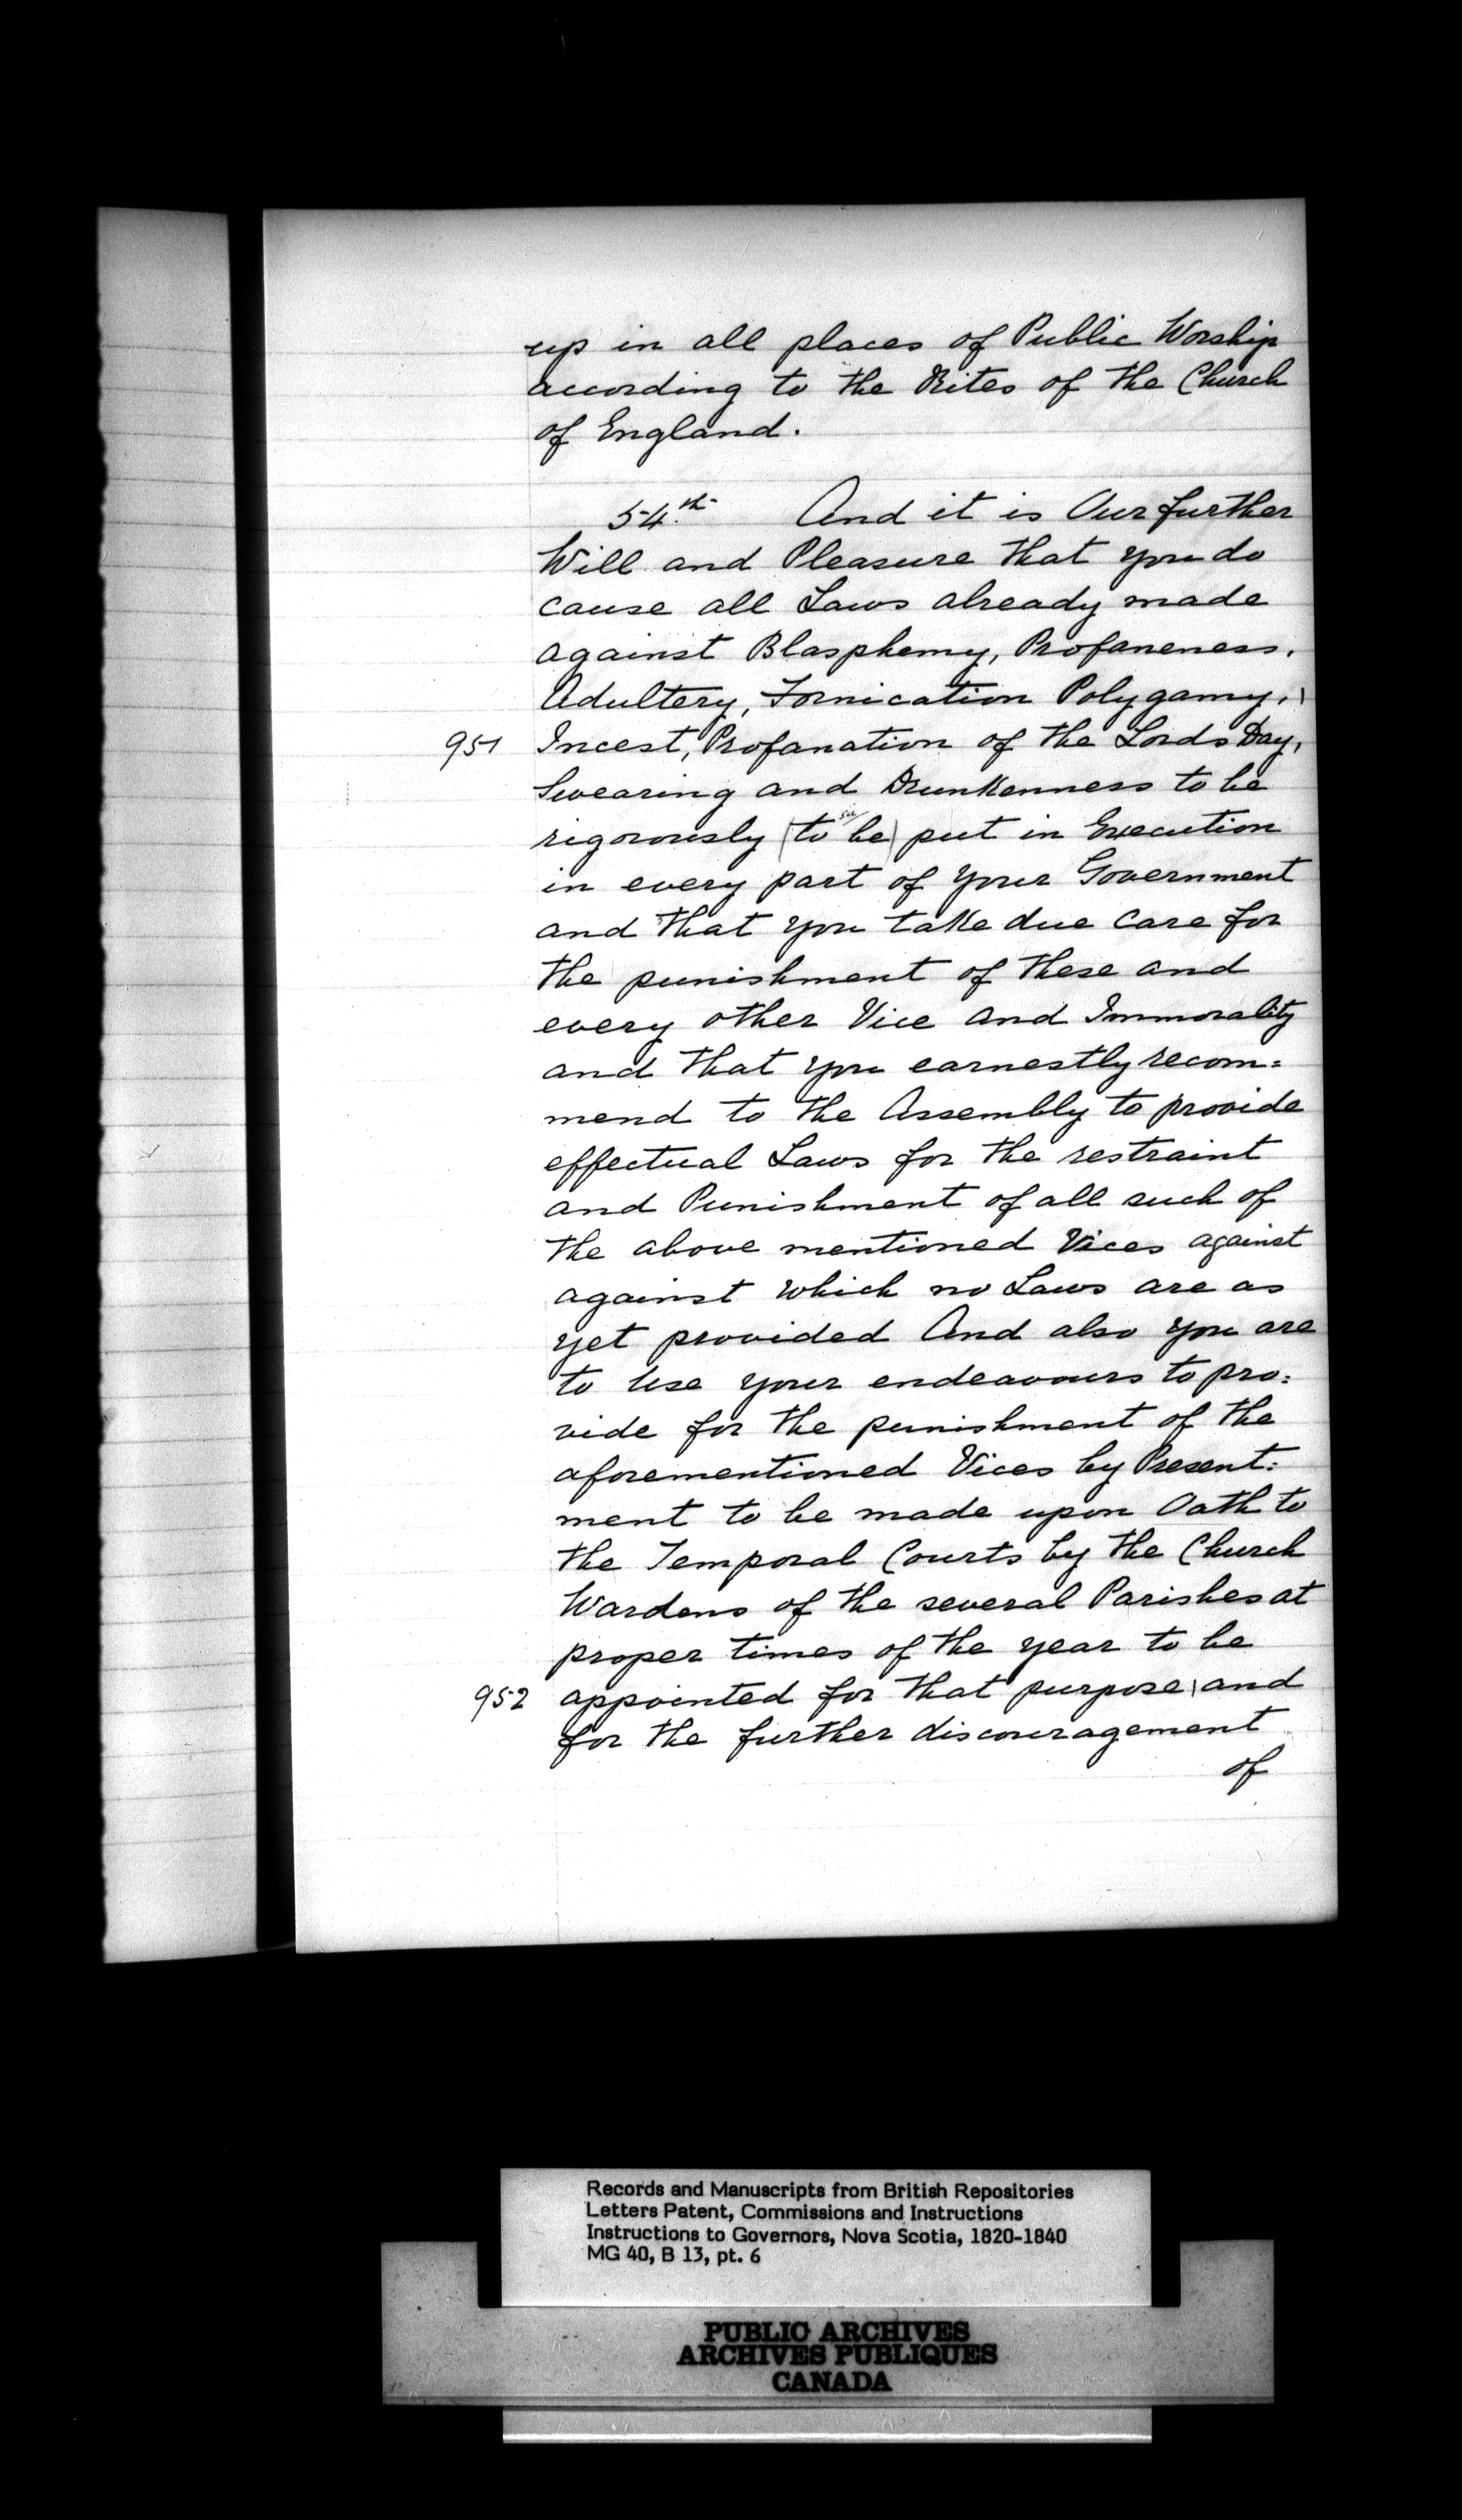 up in all places of Public Worship
according to the Rites of the Church
of England.
54.th And it is Our further
Will and Pleasure that you do
cause all Laws already made
against Blasphemy, Profaneness,
Adultery, Fornication Polygamy, \
951 Incest, Profanation of the Lords Day,
Swearing and Drunkenness to be
sic
rigorously (to be) put in Execution
in every part of your Government
and that you take due care for
the punishment of these and
every other Vice and Immorality
and that you earnestly recom=
mend to the Assembly to provide
effectual Laws for the restraint
and Punishment of all such of
the above mentioned Vices against
against which no Laws are as
yet provided And also you are
to use your endeavours to pro=
vide for the punishment of the
aforementioned Vices by Present=
ment to be made upon Oath to
the Temporal Courts by the Church
Wardens of the several Parishes at
proper times of the year to be
952 appointed for that purpose \ and
for the further discouragement
of
Records and Manuscripts from British Repositories
Letters Patent, Commissions and Instructions
Instructions to Governors, Nova Scotia, 1820-1840
MG 40, B 13, pt. 6
PUBLIC ARCHIVES
ARCHIVES PUBLIQUES
CANADA